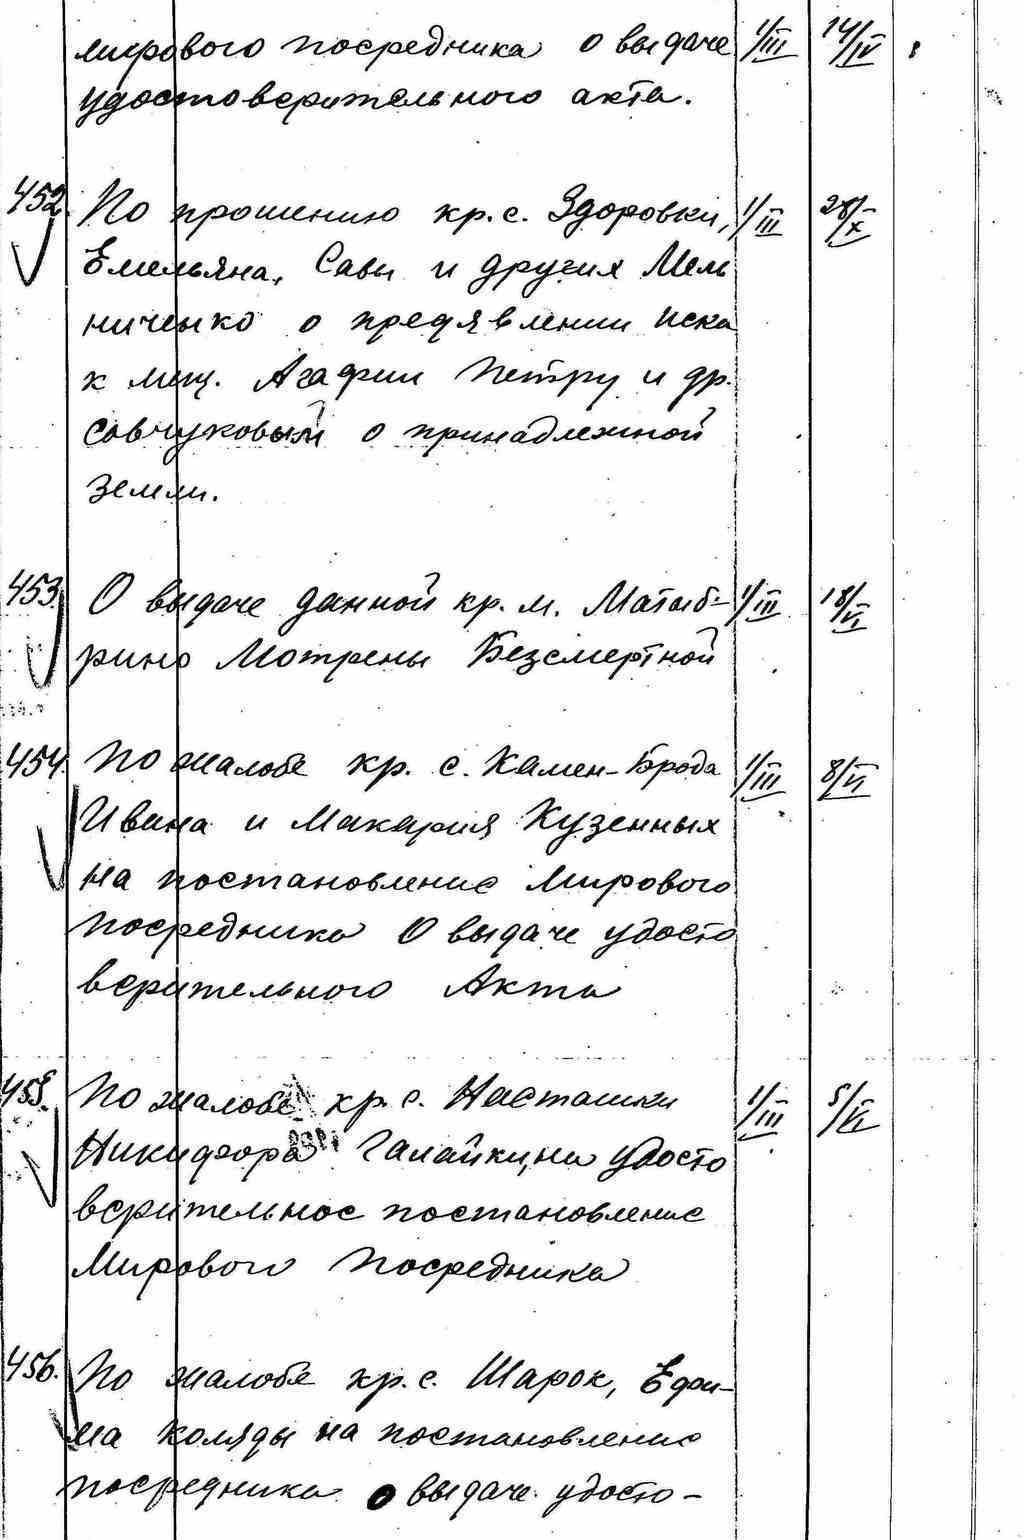 мирового посредника о выдаче 1/III 14/IV
удостоверительного акта.
452. По прошению кр. с. Здоровки, 1/III 28/X
Емельяна, Савы и других Мель
ниченко о предявлении иска
к мещ. Агафии Петру и др.
Савчуковый о принадлежной
земли.
453. О выдаче данной кр. м. 1/III 18/VI
Мотрены Безсмертной
454. По жалобе кр. с. Камен-Брода 1/III 8/VI
Ивана и Макария Кузенных
на постановление Мирового
посредника О выдаче удосто
верительного Акта
455. По жалобе кр. с. Насташки 1/III 5/VI
Никифора Галайки, на удосто
верительное постановление
Мирового Посредника
456. По жалобе кр. с. Шарок, Ефи-
ма Коляды на постановление
посредника о выдаче удосто-